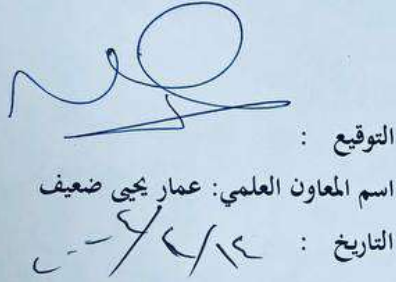 التوقيع :
اسم المعاون العلمي: عمار يحيى ضعيف
التاريخ :